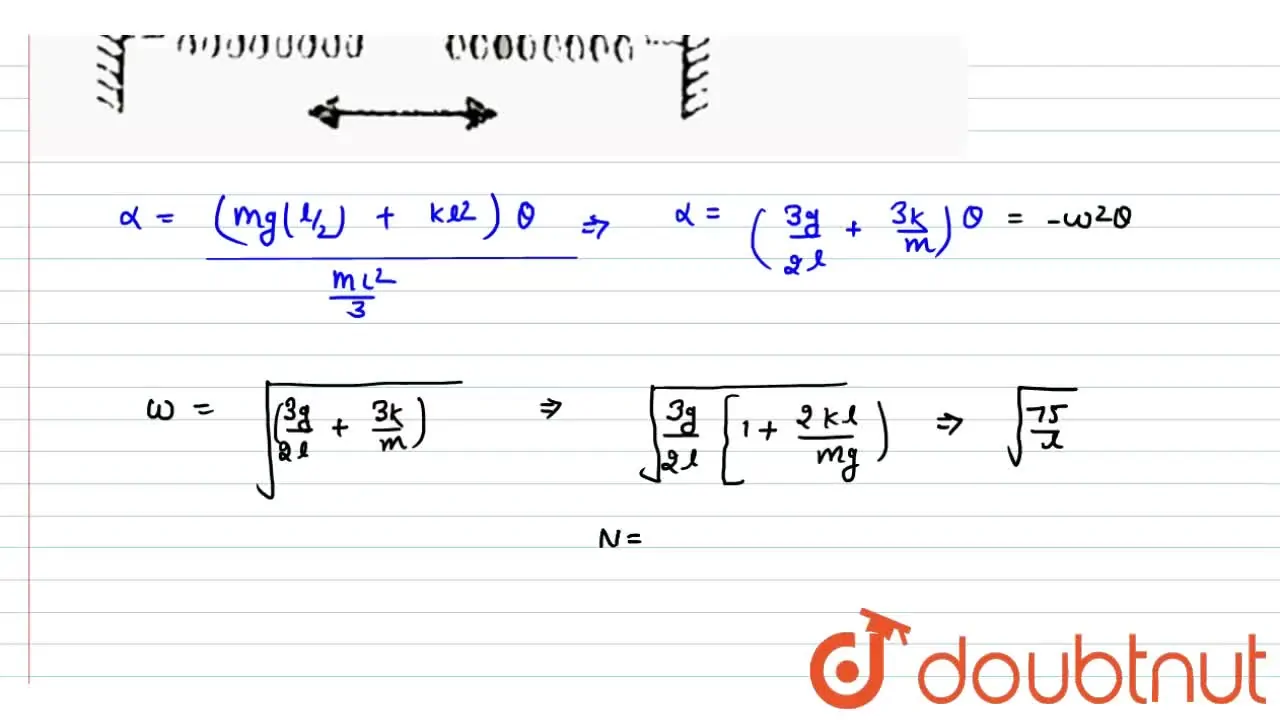 α = (mg(l/2) + kl2) θ / (ml2/3) ⇒ α = (3g/2l + 3k/m) θ = -ω2θ
ω = √(3g/2l + 3k/m) ⇒ √(3g/2l [1 + 2kl/mg) ⇒ √(75/l)
N =
doubtnut